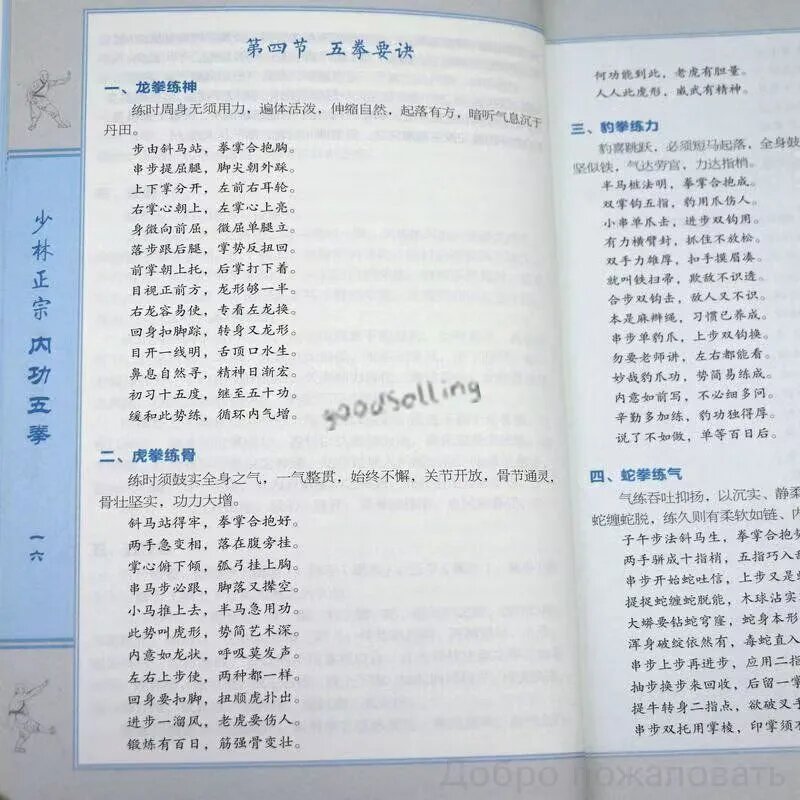 第四节 五拳要诀
一、龙拳练神
练时周身无须用力，遍体活泼，伸缩自然，起落有方，暗听气息沉于
丹田。
步由斜马站，拳掌合抱胸。
串步提屈腿，脚尖朝外踩。
上下掌分开，左前右耳轮。
右掌心朝上，左掌心上亮。
身微向前屈，微屈单腿立。
落步跟后腿，掌势反扭回。
前掌朝上托，后掌打下着。
目视正前方，龙形够一半。
右龙容易使，专看左龙换。
回身扣脚踪，转身又龙形。
目开一线明，舌顶口水生。
鼻息自然寻，精神日渐宏。
初习十五度，继至五十功。
缓和此势练，循环内气增。
二、虎拳练骨
练时须鼓实全身之气，一气整贯，始终不懈，关节开放，骨节通灵，
骨壮坚实，功力大增。
斜马站得牢，拳掌合抱好。
两手急变相，落在腹旁挂。
掌心俯下倾，弧弓挂上胸。
串马步必跟，脚落又撑空。
小马推上去，半马急用功。
此势叫虎形，势简艺术深。
内意如龙状，呼吸莫发声。
左右上步使，两种都一样。
回身要扣脚，扭顺虎扑出。
进步一溜风，老虎要伤人。
锻炼有百日，筋强骨变壮。
少林正宗 内功五拳
一六
何功能到此，老虎有胆量。
人人此虎形，威武有精神。
三、豹拳练力
豹喜跳跃，必须短马起落，全身鼓
坚似铁，气达劳宫，力达指梢。
半马桩法明，拳掌合抱成。
双掌钩五指，豹用爪伤人。
小串单爪击，进步双钩用。
有力横臂封，抓住不放松。
双手力雄厚，扣手摸眉凑。
就叫铁扫帚，欺敌不识逃。
合步双钩击，敌人又不识。
本是麻辫绳，习惯已养成。
串步单豹爪，上步双钩换。
勿要老师讲，左右都能看。
妙哉豹爪功，势简易练成。
内意如前写，不必细多问。
辛勤多加练，豹功独得厚。
说了不如做，单等百日后。
四、蛇拳练气
气练吞吐抑扬，以沉实、静柔
蛇缠蛇脱，练久则有柔软如链、内
子午步法斜马生，拳掌合抱势
两手骈成十指梢，五指巧入
串步开始蛇吐信，上步又是蛇
提捉蛇缠蛇脱能，木球沾实
大蟒要钻蛇穹窿，蛇身本形
浑身破绽依然有，毒蛇直入
串步上步再进步，应用二指
抽步换步来回收，后留一掌
提牛转身二指点，欲破叉手
串步双托用掌棱，印掌须不
goodsolling
Добро пожаловать